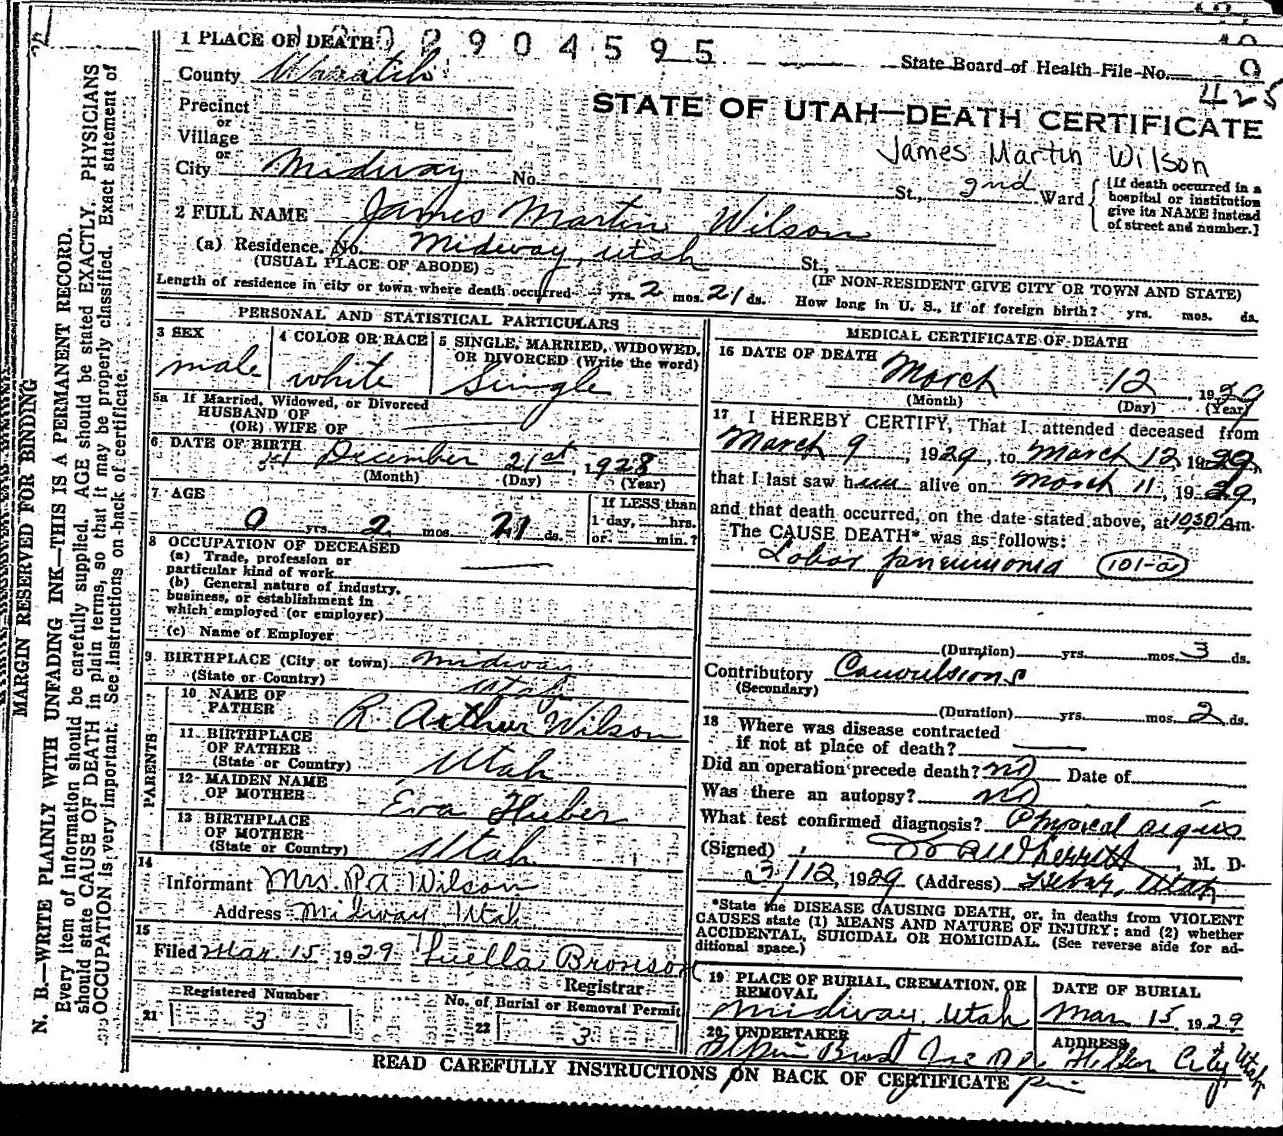 MARGIN RESERVED FOR BINDING
N. B.—WRITE PLAINLY WITH UNFADING INK—THIS IS A PERMANENT RECORD.
Every item of information should be carefully supplied. AGE should be stated EXACTLY. PHYSICIANS
should state CAUSE OF DEATH in plain terms, so that it may be properly classified. Exact statement of
OCCUPATION is very important. See instructions on back of certificate.
2904595
1 PLACE OF DEATH
State Board of Health File No. 9
425
County Wasatch
STATE OF UTAH—DEATH CERTIFICATE
James Martin Wilson
Precinct
or
Village
or
City Midway No. St., 2nd Ward
[If death occurred in a hospital or institution give its NAME instead of street and number.]
2 FULL NAME James Martin Wilson
(a) Residence. No. Midway, Utah St.,
(USUAL PLACE OF ABODE) (IF NON-RESIDENT GIVE CITY OR TOWN AND STATE)
Length of residence in city or town where death occurred yrs. 2 mos. 21 ds. How long in U. S., if of foreign birth? yrs. mos. ds.
PERSONAL AND STATISTICAL PARTICULARS
3 SEX male
4 COLOR OR RACE white
5 SINGLE, MARRIED, WIDOWED, OR DIVORCED (Write the word) Single
5a If Married, Widowed, or Divorced
HUSBAND OF
(OR) WIFE OF
6 DATE OF BIRTH December 21st, 1928
(Month) (Day) (Year)
7 AGE 0 yrs. 2 mos. 21 ds.
If LESS than
1 day, hrs.
or min.?
8 OCCUPATION OF DECEASED
(a) Trade, profession or
particular kind of work
(b) General nature of industry,
business, or establishment in
which employed (or employer)
(c) Name of Employer
9 BIRTHPLACE (City or town) Midway
(State or Country) Utah
PARENTS
10 NAME OF FATHER R. Arthur Wilson
11 BIRTHPLACE OF FATHER (State or Country) Utah
12 MAIDEN NAME OF MOTHER Eva Huber
13 BIRTHPLACE OF MOTHER (State or Country) Utah
14
Informant Mrs. R.A. Wilson
Address Midway Utah
15
Filed Mar. 15 1929 Luella Bronson
Registrar
Registered Number
21 3
No. of Burial or Removal Permit
22 3
MEDICAL CERTIFICATE OF DEATH
16 DATE OF DEATH March 12, 1929
(Month) (Day) (Year)
17 I HEREBY CERTIFY, That I attended deceased from
March 9, 1929, to March 12 1929,
that I last saw him alive on March 11, 1929,
and that death occurred, on the date stated above, at 1030 Am.
The CAUSE DEATH* was as follows:
Lobar pneumonia (101-a)
(Duration) yrs. mos. 3 ds.
Contributory Convulsions
(Secondary)
(Duration) yrs. mos. 2 ds.
18 Where was disease contracted
if not at place of death?
Did an operation precede death? no Date of
Was there an autopsy? no
What test confirmed diagnosis? Physical signs
(Signed) M. D.
3/12, 1929 (Address) Heber, Utah
*State the DISEASE CAUSING DEATH, or, in deaths from VIOLENT
CAUSES state (1) MEANS AND NATURE OF INJURY; and (2) whether
ACCIDENTAL, SUICIDAL OR HOMICIDAL. (See reverse side for ad-
ditional space.)
19 PLACE OF BURIAL, CREMATION, OR REMOVAL Midway, Utah
DATE OF BURIAL Mar 15 1929
20 UNDERTAKER
ADDRESS Heber City, Utah
READ CAREFULLY INSTRUCTIONS ON BACK OF CERTIFICATE